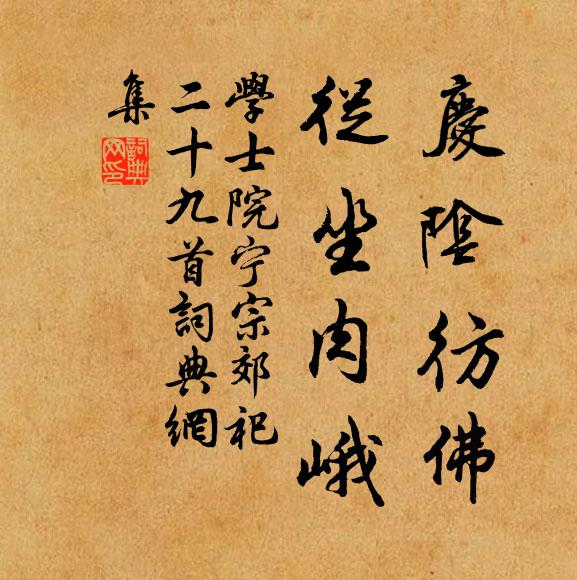 慶陰彷佛
從坐肉峨
學士院宁宗郊祀
二十九首詞典網
集
詞典
网印